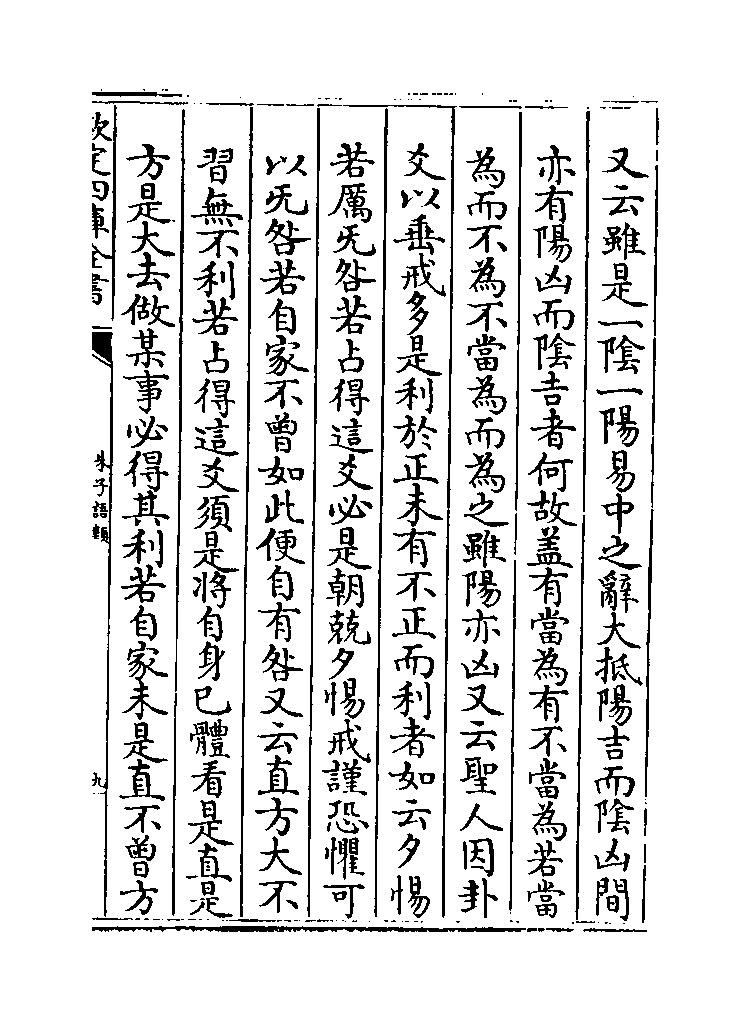 又云雖是一陰一陽易中之辭大抵陽吉而陰凶間
亦有陽凶而陰吉者何故盖有當為有不當為若當
為而不為不當為而為之雖陽亦凶又云聖人因卦
爻以垂戒多是利於正未有不正而利者如云夕惕
若厲无咎若占得這爻必是朝兢夕惕戒謹恐懼可
以无咎若自家不曾如此便自有咎又云直方大不
習無不利若占得這爻須是將自身已體看是直是
方是大去做某事必得其利若自家未是直不曾方
欽定四庫全書
朱子語類
九